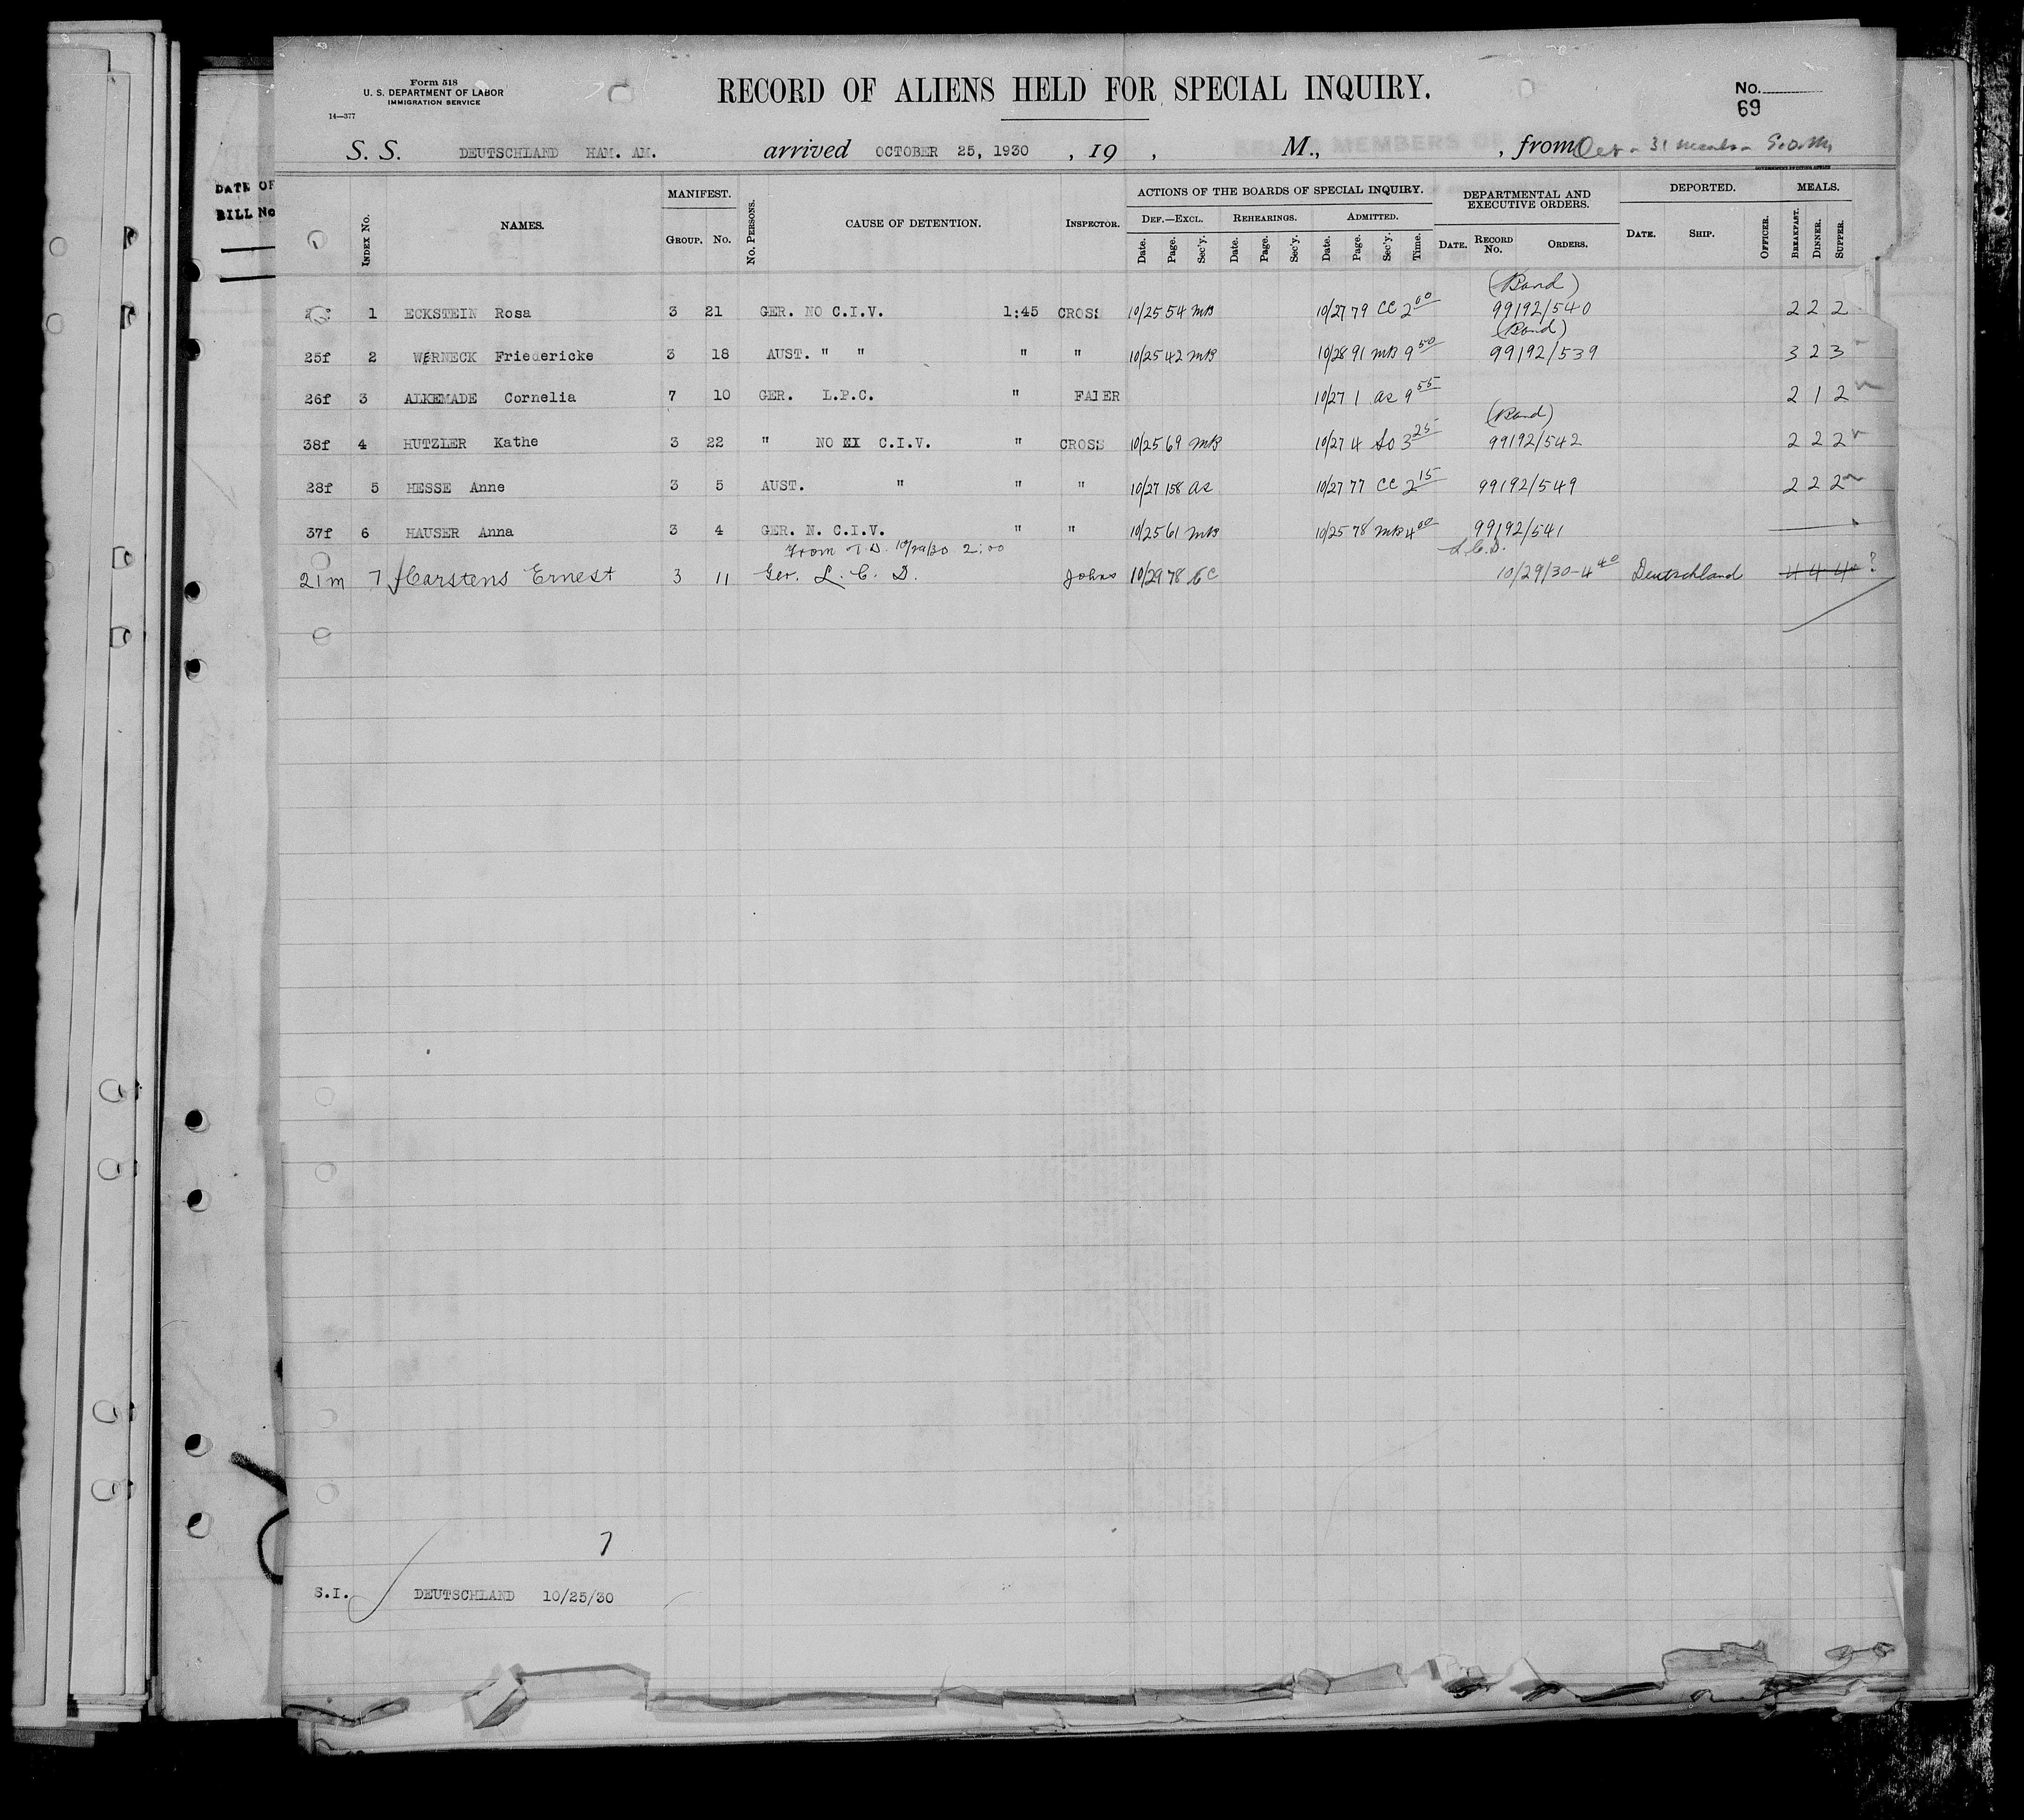 Form 518
U. S. DEPARTMENT OF LABOR
IMMIGRATION SERVICE
14—377
RECORD OF ALIENS HELD FOR SPECIAL INQUIRY.
No.
69
S. S. DEUTSCHLAND HAM. AM. arrived OCTOBER 25, 1930 , 19 , M., , from
DATE OF
BILL No
INDEX No. NAMES. MANIFEST. GROUP. No. No. PERSONS. CAUSE OF DETENTION. INSPECTOR. ACTIONS OF THE BOARDS OF SPECIAL INQUIRY. DEF.—EXCL. Date. Page. Sec'y. REHEARINGS. Date. Page. Sec'y. ADMITTED. Date. Page. Sec'y. Time. DEPARTMENTAL AND EXECUTIVE ORDERS. DATE. RECORD No. ORDERS. DEPORTED. DATE. SHIP. OFFICER. MEALS. BREAKFAST. DINNER. SUPPER.
(Bond)
1 ECKSTEIN Rosa 3 21 GER. NO C.I.V. 1:45 CROSS 10/25 54 MB 10/27 79 CC 2 00 99192/540 2 2 2
(Bond)
25f 2 WERNECK Friedericke 3 18 AUST. " " " " 10/25 42 MB 10/28 91 MB 9 50 99192/539 3 2 3
26f 3 ALKEMADE Cornelia 7 10 GER. L.P.C. " FAIER 10/27 1 as 9 55 2 1 2
(Bond)
38f 4 HUTZLER Kathe 3 22 " NO C.I.V. " CROSS 10/25 69 MB 10/27 4 So 3 25 99192/542 2 2 2
28f 5 HESSE Anne 3 5 AUST. " " " 10/27 158 as 10/27 77 CC 2 15 99192/549 2 2 2
37f 6 HAUSER Anna 3 4 GER. N. C.I.V. " " 10/25 61 MB 10/25 78 MB 4 00 99192/541
From T.D. 10/29/30 2:00
21m 7 Carstens Ernest 3 11 Ger. L. C. D. Johns 10/29 78 CC 10/29/30-4 40 Deutschland 4 4 4 ?
7
S.I. DEUTSCHLAND 10/25/30